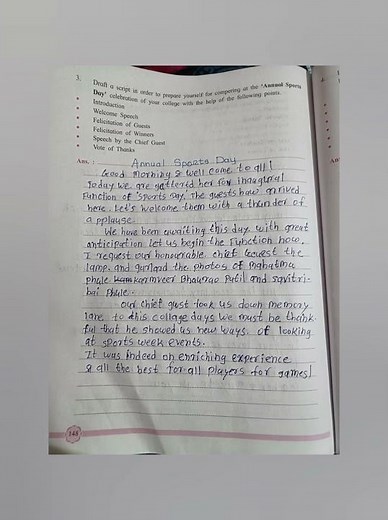 3.
Draft a script in order to prepare yourself for compering at the 'Annual Sports
Day' celebration of your college with the help of the following points.
• Introduction
• Welcome Speech
• Felicitation of Guests
• Felicitation of Winners
• Speech by the Chief Guest
• Vote of Thanks
Ans. : Annual Sports Day
Good Morning & well come to all!
Today we are gathered her for inaugural
Function of 'sports Day'. The guests have arrived
here. Let's welcome them with a thunder of
applause.
We have been awaiting this day with great
anticipation let us begin the Function now.
I request our honourable chief guest the
lamp and garland the photos of Mahatma
phule karmveer Bhaurao Patil and savitri-
bai phule.
our chief gust took us down memory
lane to this collage days we must be thank-
ful that he showed us new ways. of looking
at sports week events.
It was indeed an enriching experience
& all the best for all players for games!
148
An